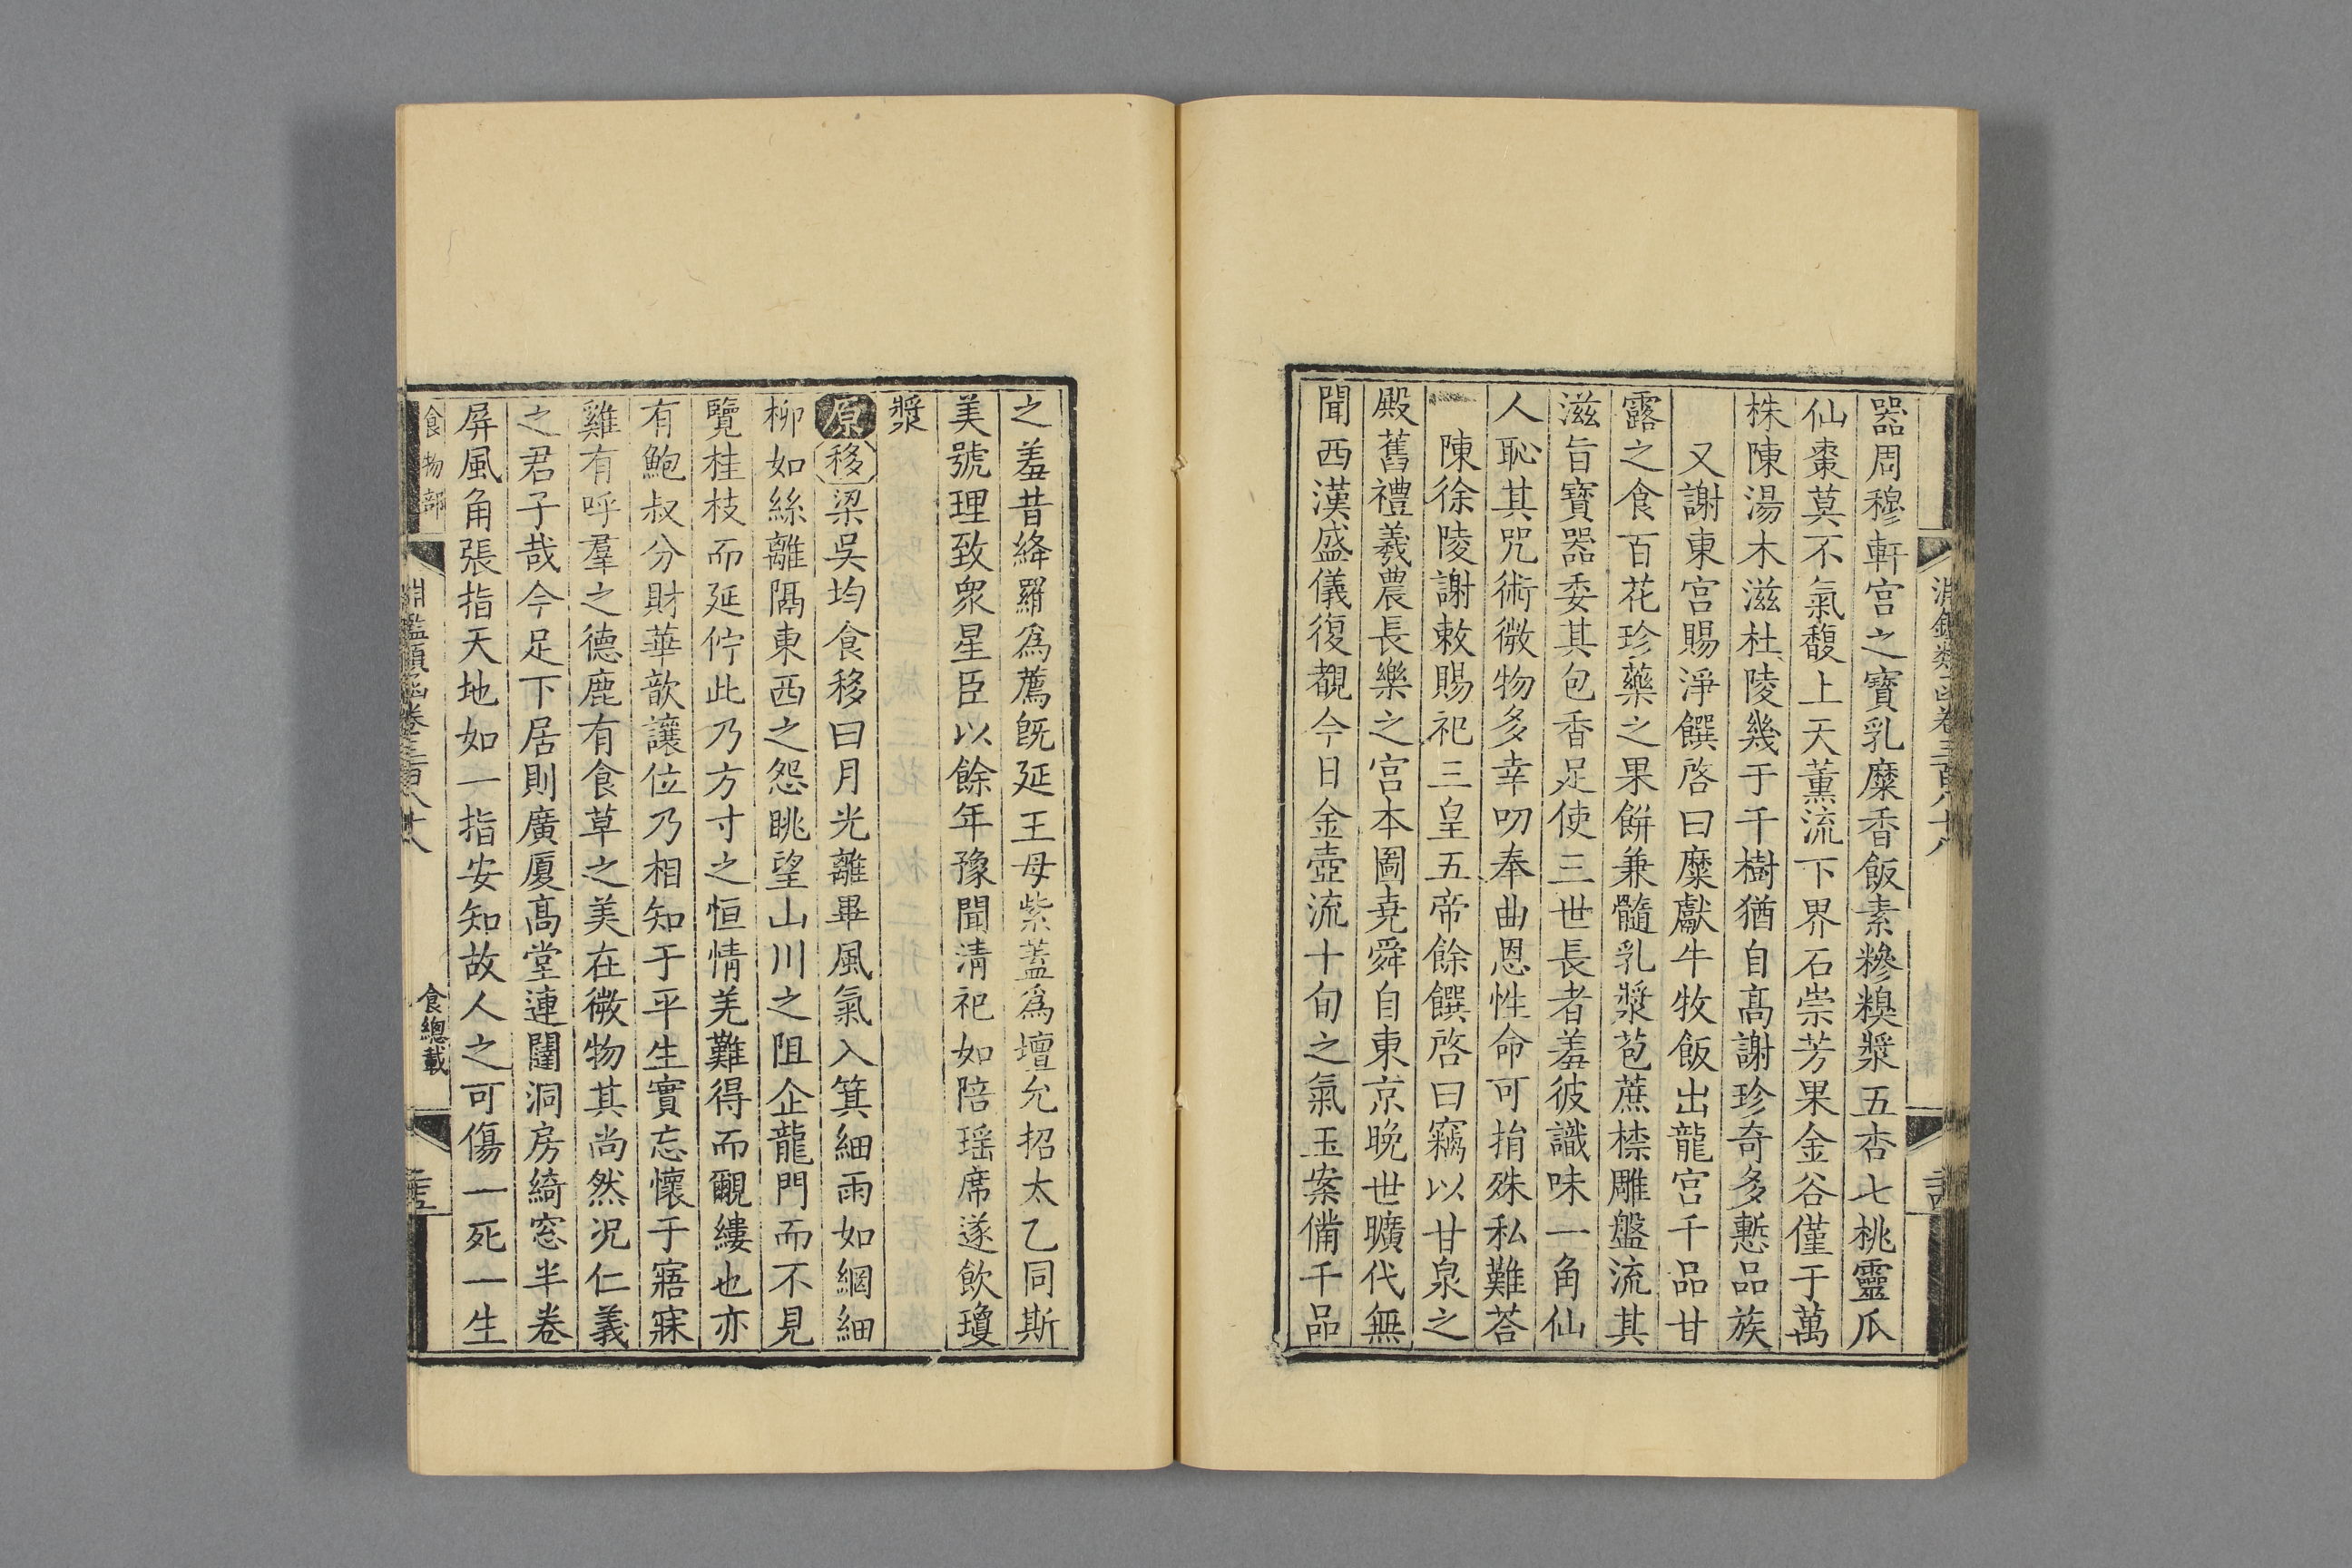 器周穆軒宮之寶乳糜香飯素糝糗漿五杏七桃靈瓜
仙棗莫不氣馥上天薰流下界石崇芳果金谷僅于萬
株陳湯木滋杜陵幾于千樹猶自髙謝珍奇多慙品族
又謝東宮賜淨饌啓曰糜獻牛牧飯出龍宮千品甘
露之食百花珍藥之果餅兼髓乳漿苞蔗㯲雕盤流其
滋旨寶器委其包香足使三世長者羞彼識味一角仙
人恥其咒術微物多幸叨奉曲恩性命可捐殊私難荅
陳徐陵謝敕賜祀三皇五帝餘饌啓曰竊以甘泉之
殿舊禮羲農長樂之宮本圖堯舜自東京晚世曠代無
聞西漢盛儀復覩今日金壺流十旬之氣玉案備千品
之羞昔絳羅爲薦旣延王母紫蓋爲壇允招太乙同斯
美號理致衆星臣以餘年豫聞清祀如陪瑶席遂飲瓊
漿
原移梁吳均食移曰月光離畢風氣入箕細雨如網細
柳如絲離隔東西之怨眺望山川之阻企龍門而不見
覽桂枝而延佇此乃方寸之恒情羌難得而覼縷也亦
有鮑叔分財華歆讓位乃相知于平生實忘懷于寤寐
雞有呼羣之德鹿有食草之美在微物其尚然况仁義
之君子哉今足下居則廣厦髙堂連闥洞房綺窓半卷
屏風角張指天地如一指安知故人之可傷一死一生
食物部
淵鑑類函卷三百八十八
食總載